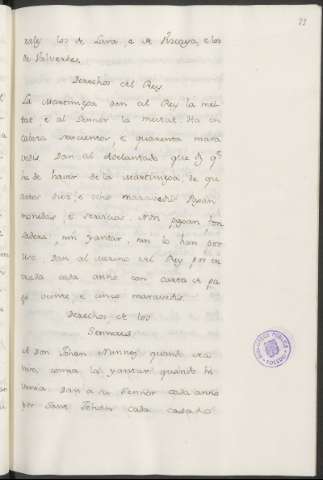 22
rales los de Lara, e de Viscaya, e los
de Valverde.
Derechos del Rey
La Martiniega dan al Rey la mei-
tat e al Sennor la meitat
cabera sescientos, e quarenta mara
vedis dan al Adelantado que
ha de haver de la Martiniega de que
estos dies, e ocho maravedis Pagan
monedas, e servicios. Non pagan fon
sadera, nin yantar, nin lo han por
uso. dan al merino del Rey por en
trada cada anno con carta de pa
go veinte e cinco maravedis
Derechos de los
Sennores
A Don Johan Nunnes quando
la yantar quando hi
dan a su Sennor cada anno
por Sant Johan cada casado
BIBLIOTECA PUBLICA
TOLEDO